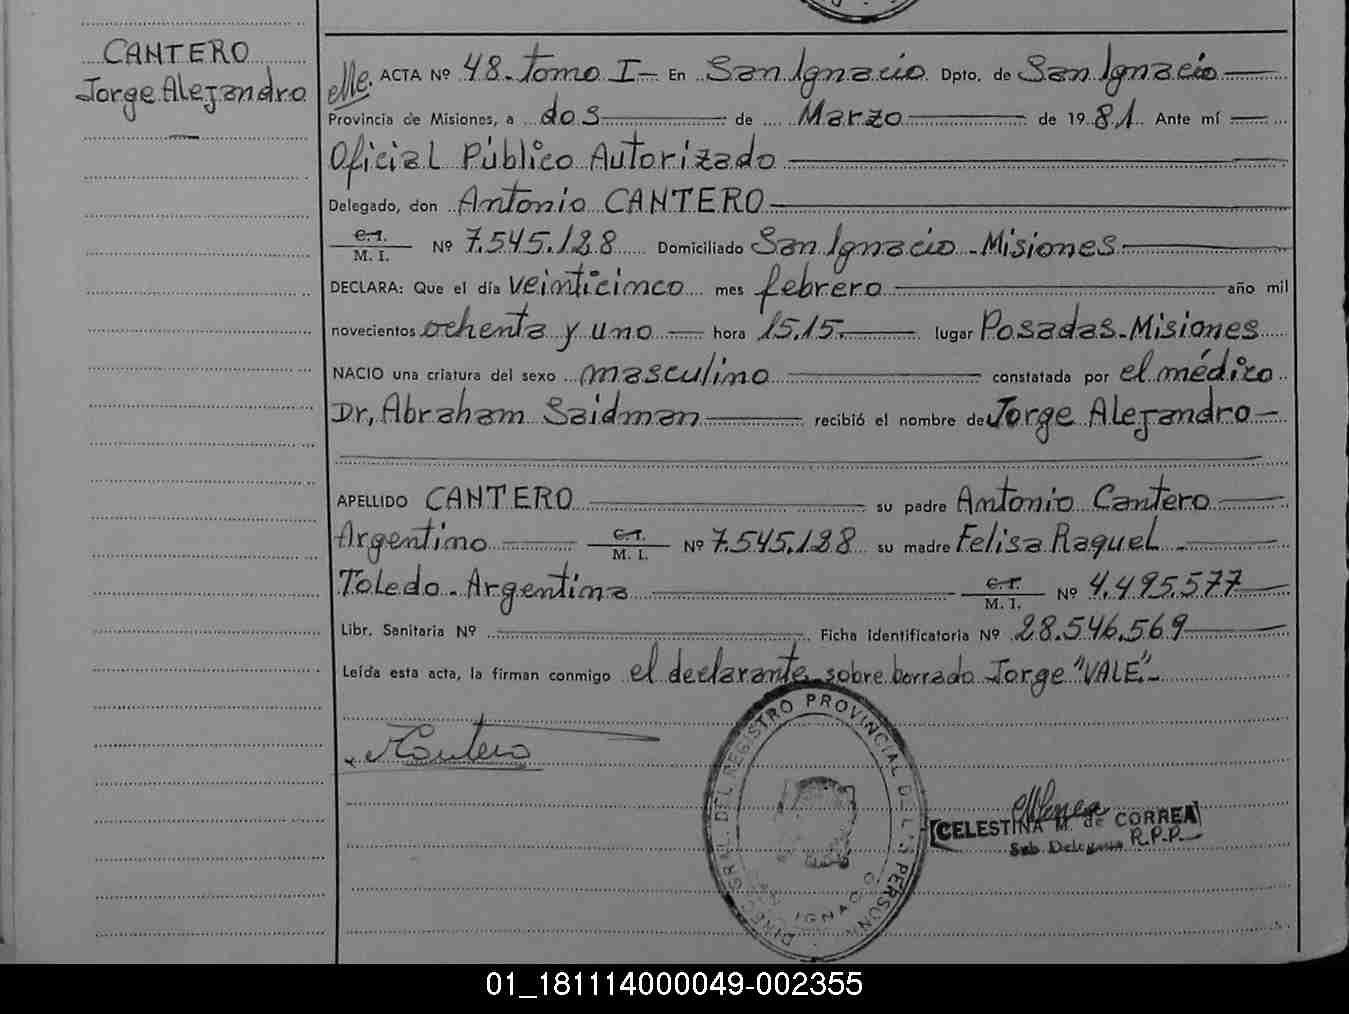 CANTERO
Jorge Alejandro
ACTA Nº 48. Tomo I – En San Ignacio Dpto. de San Ignacio
Provincia de Misiones, a dos de Marzo de 1981. Ante mí
Oficial Público Autorizado
Delegado, don Antonio CANTERO
C.I. / M. I. Nº 7.545.188 Domiciliado San Ignacio - Misiones
DECLARA: Que el día veinticinco mes febrero año mil
novecientos ochenta y uno hora 15,15. lugar Posadas - Misiones
NACIO una criatura del sexo masculino constatada por el médico
Dr, Abraham Saidman recibió el nombre de Jorge Alejandro
APELLIDO CANTERO su padre Antonio Cantero
Argentino C.I. / M. I. Nº 7.545.188 su madre Felisa Raquel
Toledo - Argentina C.I. / M. I. Nº 4.495.577
Libr. Sanitaria Nº Ficha Identificatoria Nº 28.546.569
Leída esta acta, la firman conmigo el declarante - sobre borrado Jorge "VALE".-
Cantero
DIREC. GRAL. DEL REGISTRO PROVINCIAL DE L S PERSON
IGNACIO
CELESTINA M. de CORREA
Sub. Delegada R.P.P.
01_181114000049-002355